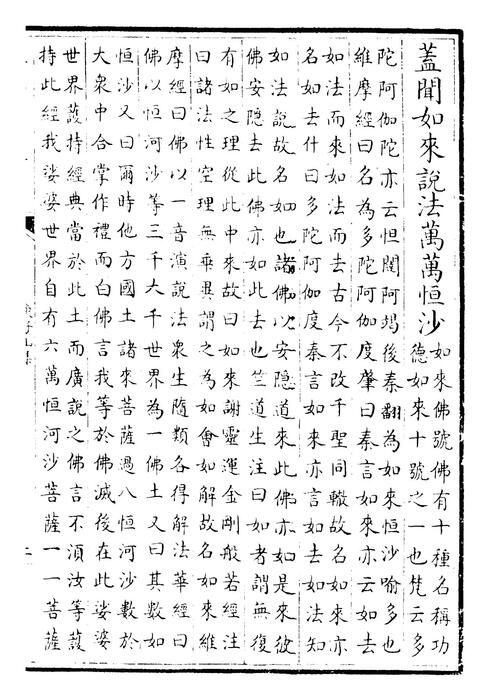 蓋聞如來說法萬萬恒沙
如來佛號佛有十種名稱功
德如來十號之一也梵云多
陀阿伽陀亦云怛闥阿竭後秦翻為如來恒沙喻多也
維摩經曰名為多陀阿伽度肇曰秦言如來亦云如去
如法而來如法而去古今不改千聖同轍故名如來亦
名如去什曰多陀阿伽度秦言如來亦言如去如法知
如法說故名如也諸佛以安隱道來此佛亦如是來彼
佛安隐去此佛亦如此去也竺道生注曰如者謂無復
有如之理從此中來故曰如來謝靈運金剛般若經注
曰諸法性空理無乖異謂之為如會如解故名如來維
摩經曰佛以一音演說法衆生隨類各得解法華經曰
佛以恒河沙等三千大千世界為一佛土又曰其數如
恒沙又曰爾時他方國土諸來菩薩過八恒河沙數於
大衆中合掌作禮而白佛言我等於佛滅後在此娑婆
世界護持經典當於此土而廣說之佛言不湏汝等護
持此經我娑婆世界自有六萬恒河沙菩薩一一菩薩